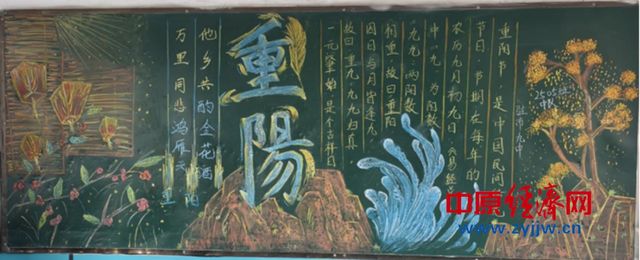 重阳节，是中国民间
节日，节期在每年的
农历九月初九日《易经》
中"九"为阳数
"九九"两阳数
相重，故曰"重阳"
因日与月皆逢九
故曰重九，九九归真
一元肇始是个吉祥日
重陽
他乡共的金花酒
万里同悲鸿雁天
中原经济网
www.zyjjw.cn